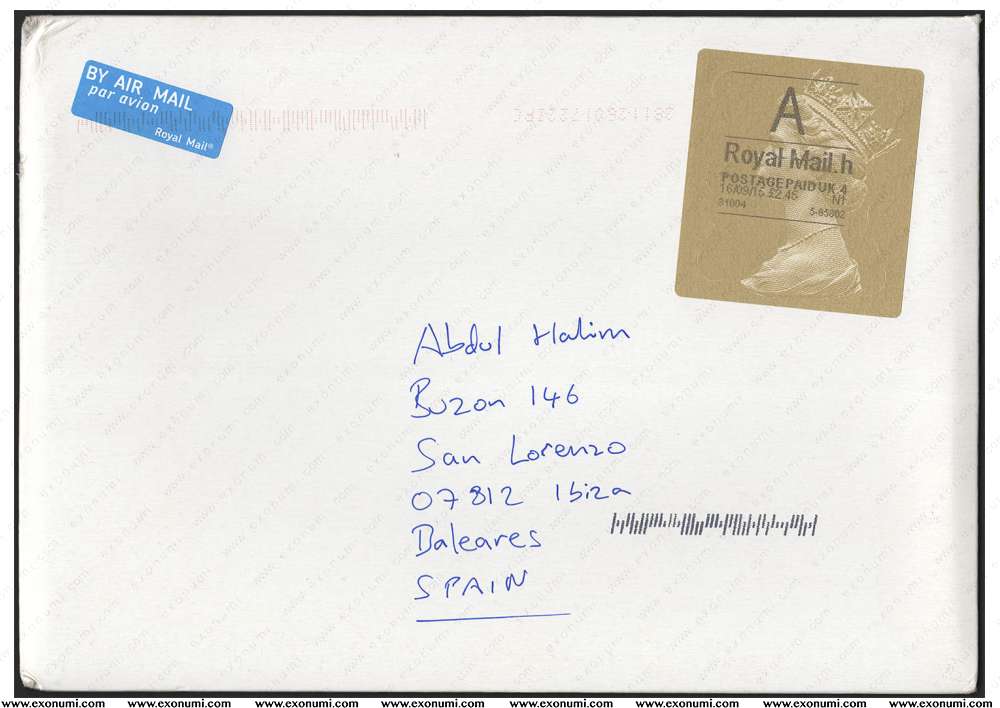 BY AIR MAIL
par avion
Royal Mail®
A
Royal Mail.h
POSTAGE PAID UK 4
16/09/15 £2.45 N1
31004 5-85802
Abdul Halim
Buzon 146
San Lorenzo
07812 Ibiza
Baleares
SPAIN
www.exonumi.com www.exonumi.com www.exonumi.com www.exonumi.com www.exonumi.com www.exonumi.com www.exonumi.com www.exonumi.com